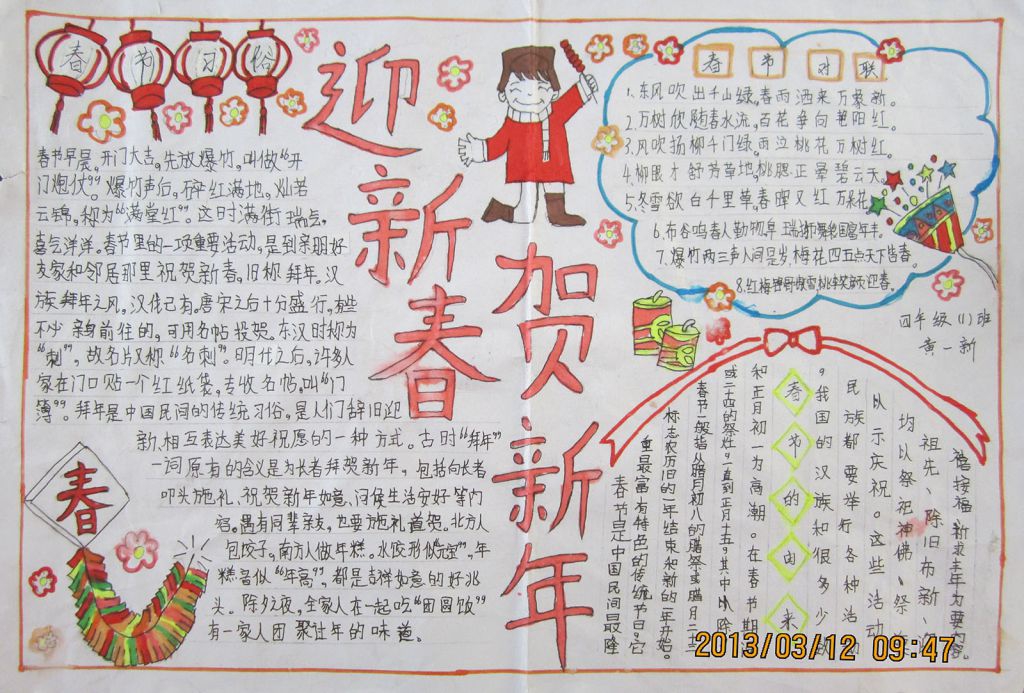 春节习俗
迎新春
贺新年
春节早晨,开门大吉,先放爆竹,叫做“开
门炮仗”。爆竹声后,碎红满地,灿若
云锦,称为“满堂红”。这时满街瑞气,
喜气洋洋。春节里的一项重要活动,是到亲朋好
友家和邻居那里祝贺新春,旧称拜年。汉
族拜年之风,汉代已有,唐宋之后十分盛行,有些
不必亲身前往的,可用名帖投贺。东汉时称为
“刺”,故名片又称“名刺”。明代之后,许多人
家在门口贴一个红纸袋,专收名帖,叫“门
簿”。拜年是中国民间的传统习俗,是人们辞旧迎
新、相互表达美好祝愿的一种方式。古时“拜年”
一词原有的含义是为长者拜贺新年,包括向长者
叩头施礼、祝贺新年如意、问候生活安好等内
容。遇有同辈亲友,也要施礼道贺。北方人
包饺子,南方人做年糕。水饺形似“元宝”,年
糕音似“年高”,都是吉祥如意的好兆
头。除夕之夜,全家人在一起吃“团圆饭”
有一家人团聚过年的味道。
春
春节对联
1.东风吹出千山绿,春雨洒来万象新。
2.万树欣随春水流,百花争向艳阳红。
3.风吹扬柳千门绿,雨泣桃花万树红。
4.柳眼才舒芳草地,桃腮正晕碧云天。
5.冬雪欲白千里草,春晖又红万朵花
6.布谷鸣春人勤物阜,瑞狮舞轮国富年丰。
7.爆竹两三声人间是岁,梅花四五点天下皆春。
四年级(1)班
黄一新
春节的由来
春节是中国民间最隆
重最富有特色的传统节日。它
标志农历旧的一年结束和新的一年开始。
春节一般指从腊月初八的腊祭或腊月二十三
或二十四的祭灶,一直到正月十五,其中以除
和正月初一为高潮。在春节期
,我国的汉族和很多少数
民族都要举行各种活动
以示庆祝。这些活动
均以祭祀神佛、祭
祖先、除旧布新、迎
禧接福、祈求丰年为主要内容。
2013/03/12 09:47